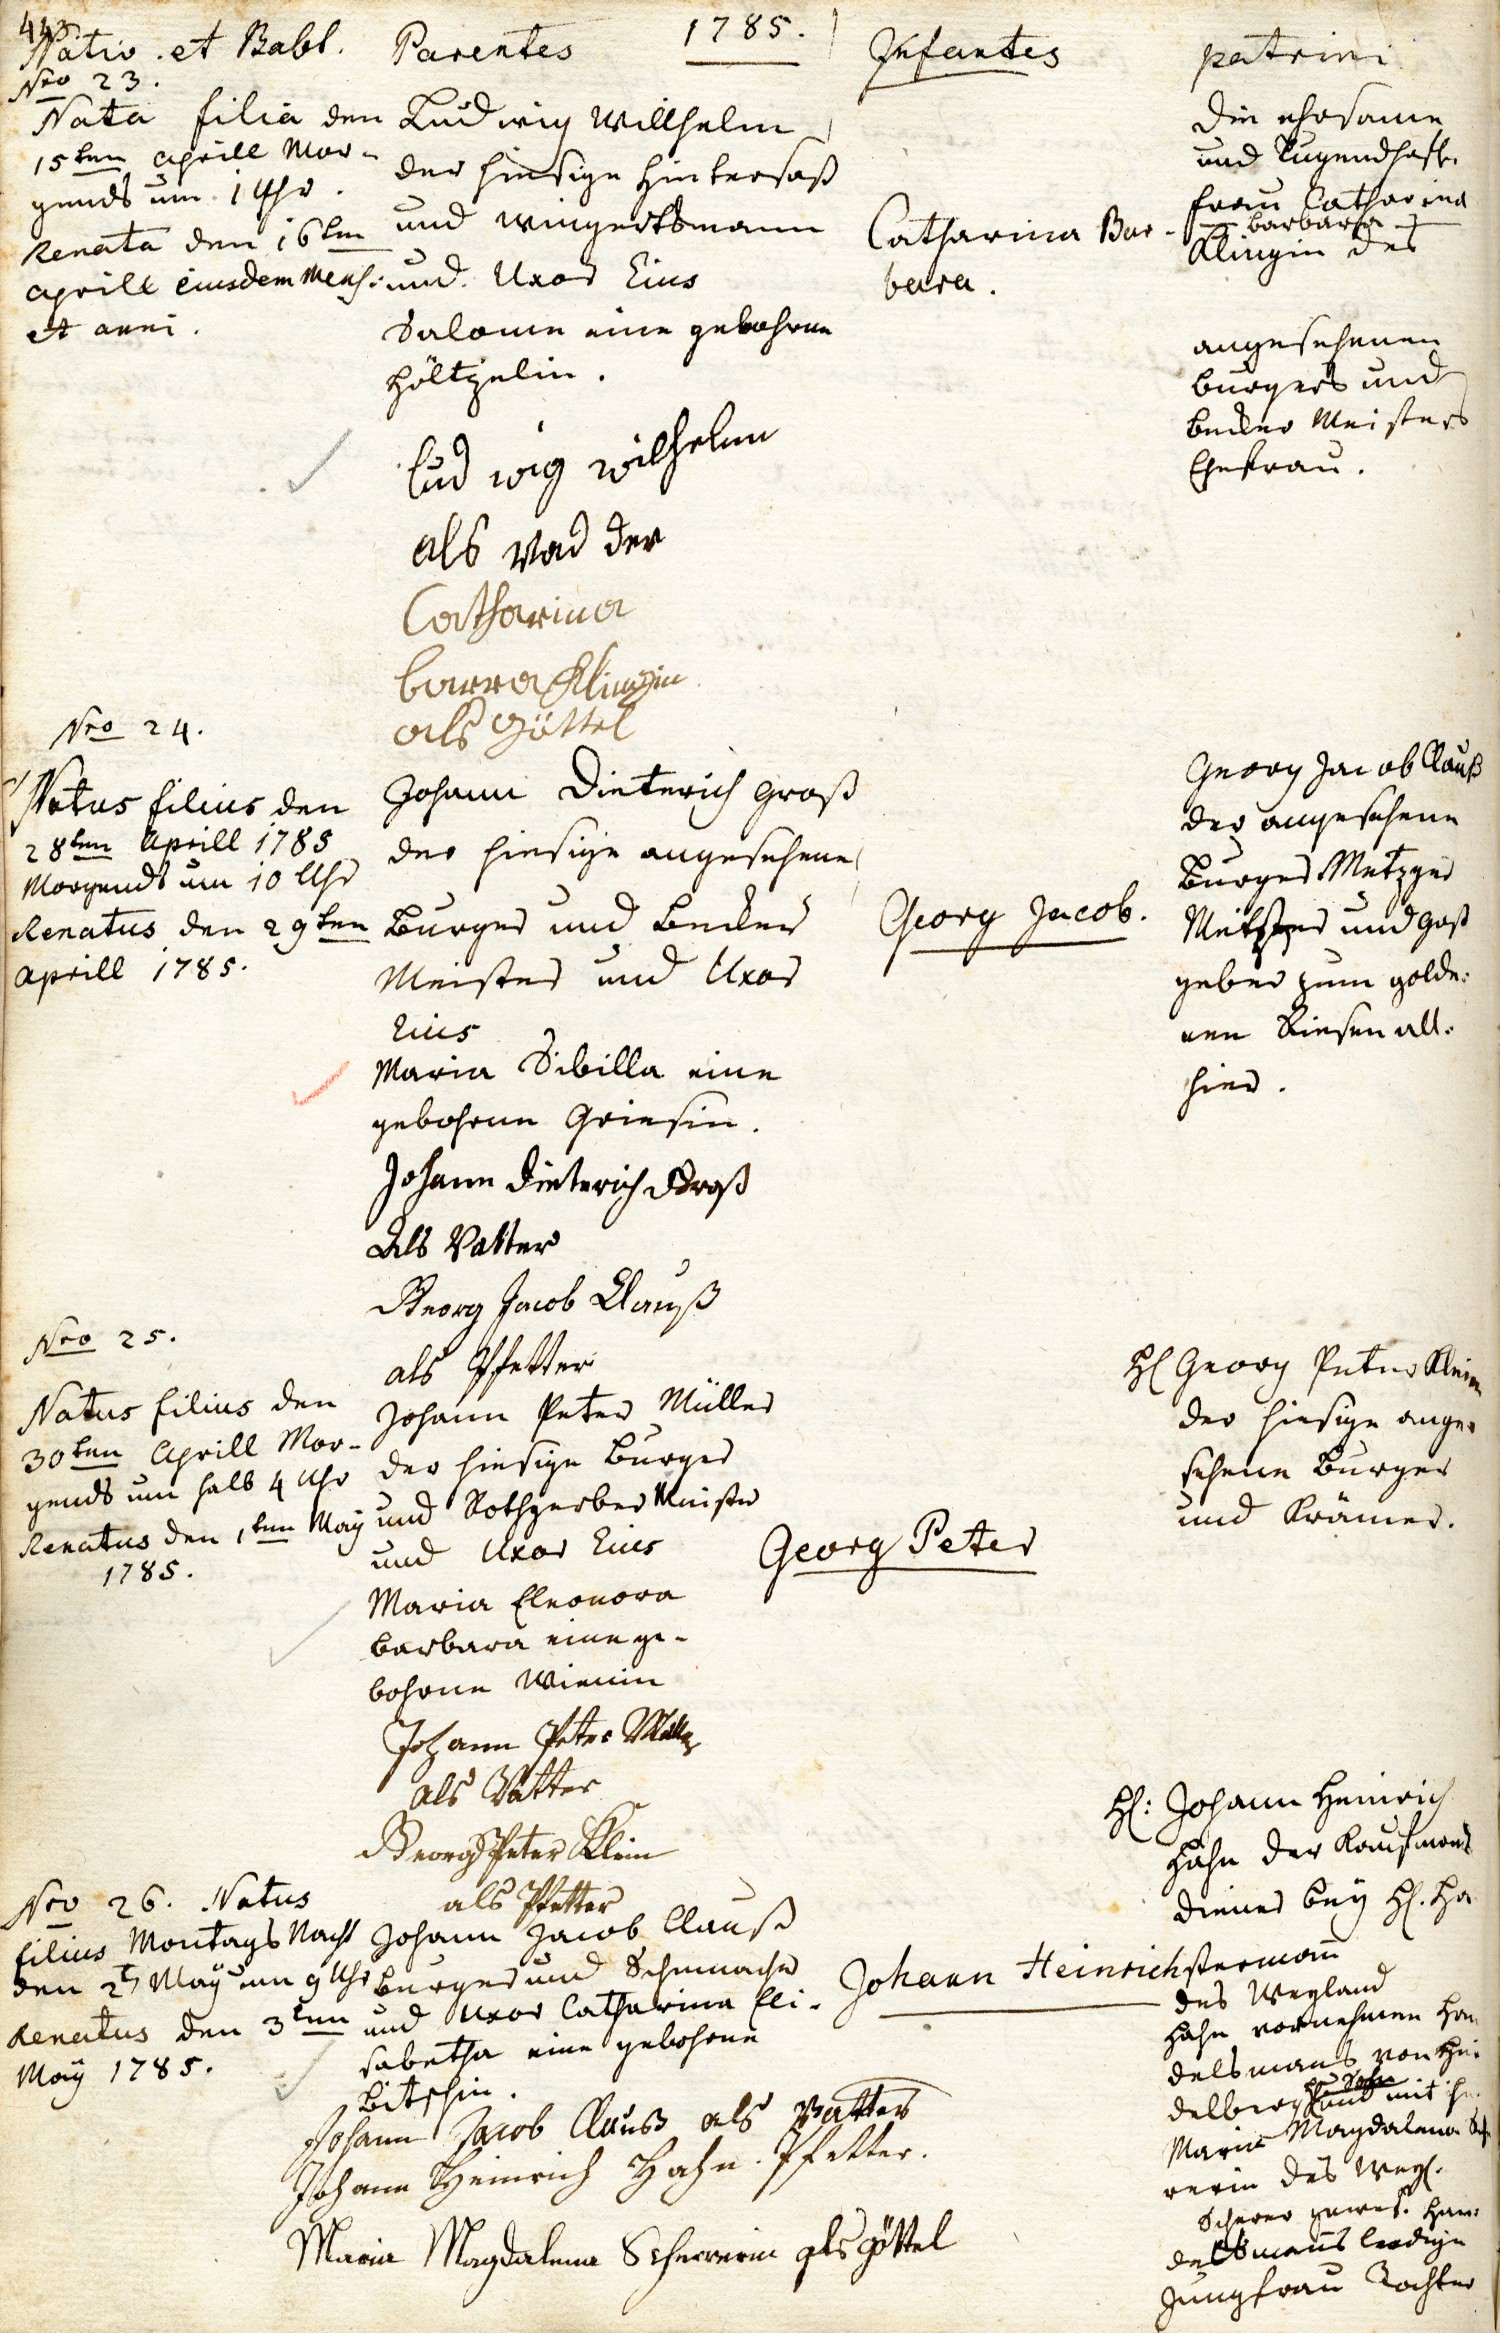 443
Nativ. et Babt. Parentes 1785. Infantes patrini
Nro 23.
Nata filia den
15ten aprill Mor-
gends um 1 Uhr.
Renata den 16ten
aprill eiusdem Mens:
et anni.
Ludwig Willhelm
der hiesige Hintersaß
und Wingertsmann
und Uxor Eius
Salome eine gebohrne
Höltzelin.
Lud wig wilhelm
als Vad der
Catharina
barra Klingin
als Göttel
Catharina Bar-
bara.
die ehrsame
und Tugendhaft.
Frau Catharina
barbara
Klingin des
angesehenen
burgers und
becker Meisters
Ehefrau.
Nro 24.
Natus filius den
28ten Aprill 1785
Morgends um 10 Uhr
Renatus den 29ten
Aprill 1785.
Johann Dieterich Groß
der hiesige angesehene
Burger und Becker
Meister und Uxor
Eius
Maria Sibilla eine
gebohrne Griesin.
Johann Dieterich Groß
Als Vatter
Georg Jacob Clauß
als Pfetter
Georg Jacob.
Georg Jacob Clauß
der angesehene
Burger Metzger
Meister und Gast
geber zum golde:
nen Riesen all:
hier.
Nro 25.
Natus filius den
30ten Aprill Mor-
gends um halb 4 Uhr
Renatus den 1ten May
1785.
Johann Peter Müller
der hiesige Burger
und Rothgerber Meister
und Uxor Eius
Maria Eleonora
barbara eine ge-
bohrne Wienin
Johann Peter Müller
als Vatter
Georg Peter Klein
als Pfetter
Georg Peter
H Georg Peter Klein
der hiesige ange
sehene Burger
und Krämer.
Nro 26. Natus
filius Montags Nacht
den 2t May um 9 Uhr
Renatus den 3ten
May 1785.
Johann Jacob Clauß
Burger und Schumacher
und Uxor Catharina Eli-
sabetha eine gebohrne
Bitschin.
Johann Jacob Clauß als Vatter
Johann Heinrich Hahn. Pfetter.
Maria Magdalena Scherrerin als Göttel
Johann Heinrich
H: Johann Heinrich
Hahn der Kaufmans
diener bey H. Ha
stermann
des Weyland
Hahn vornehmen Han
delsmans von Hei
delberg Sohn mit ihr
Maria Magdalena Sch
rerin des Weyl.
Scherer gewes. Han:
delsmanns ledige
Jungfrau Tochter